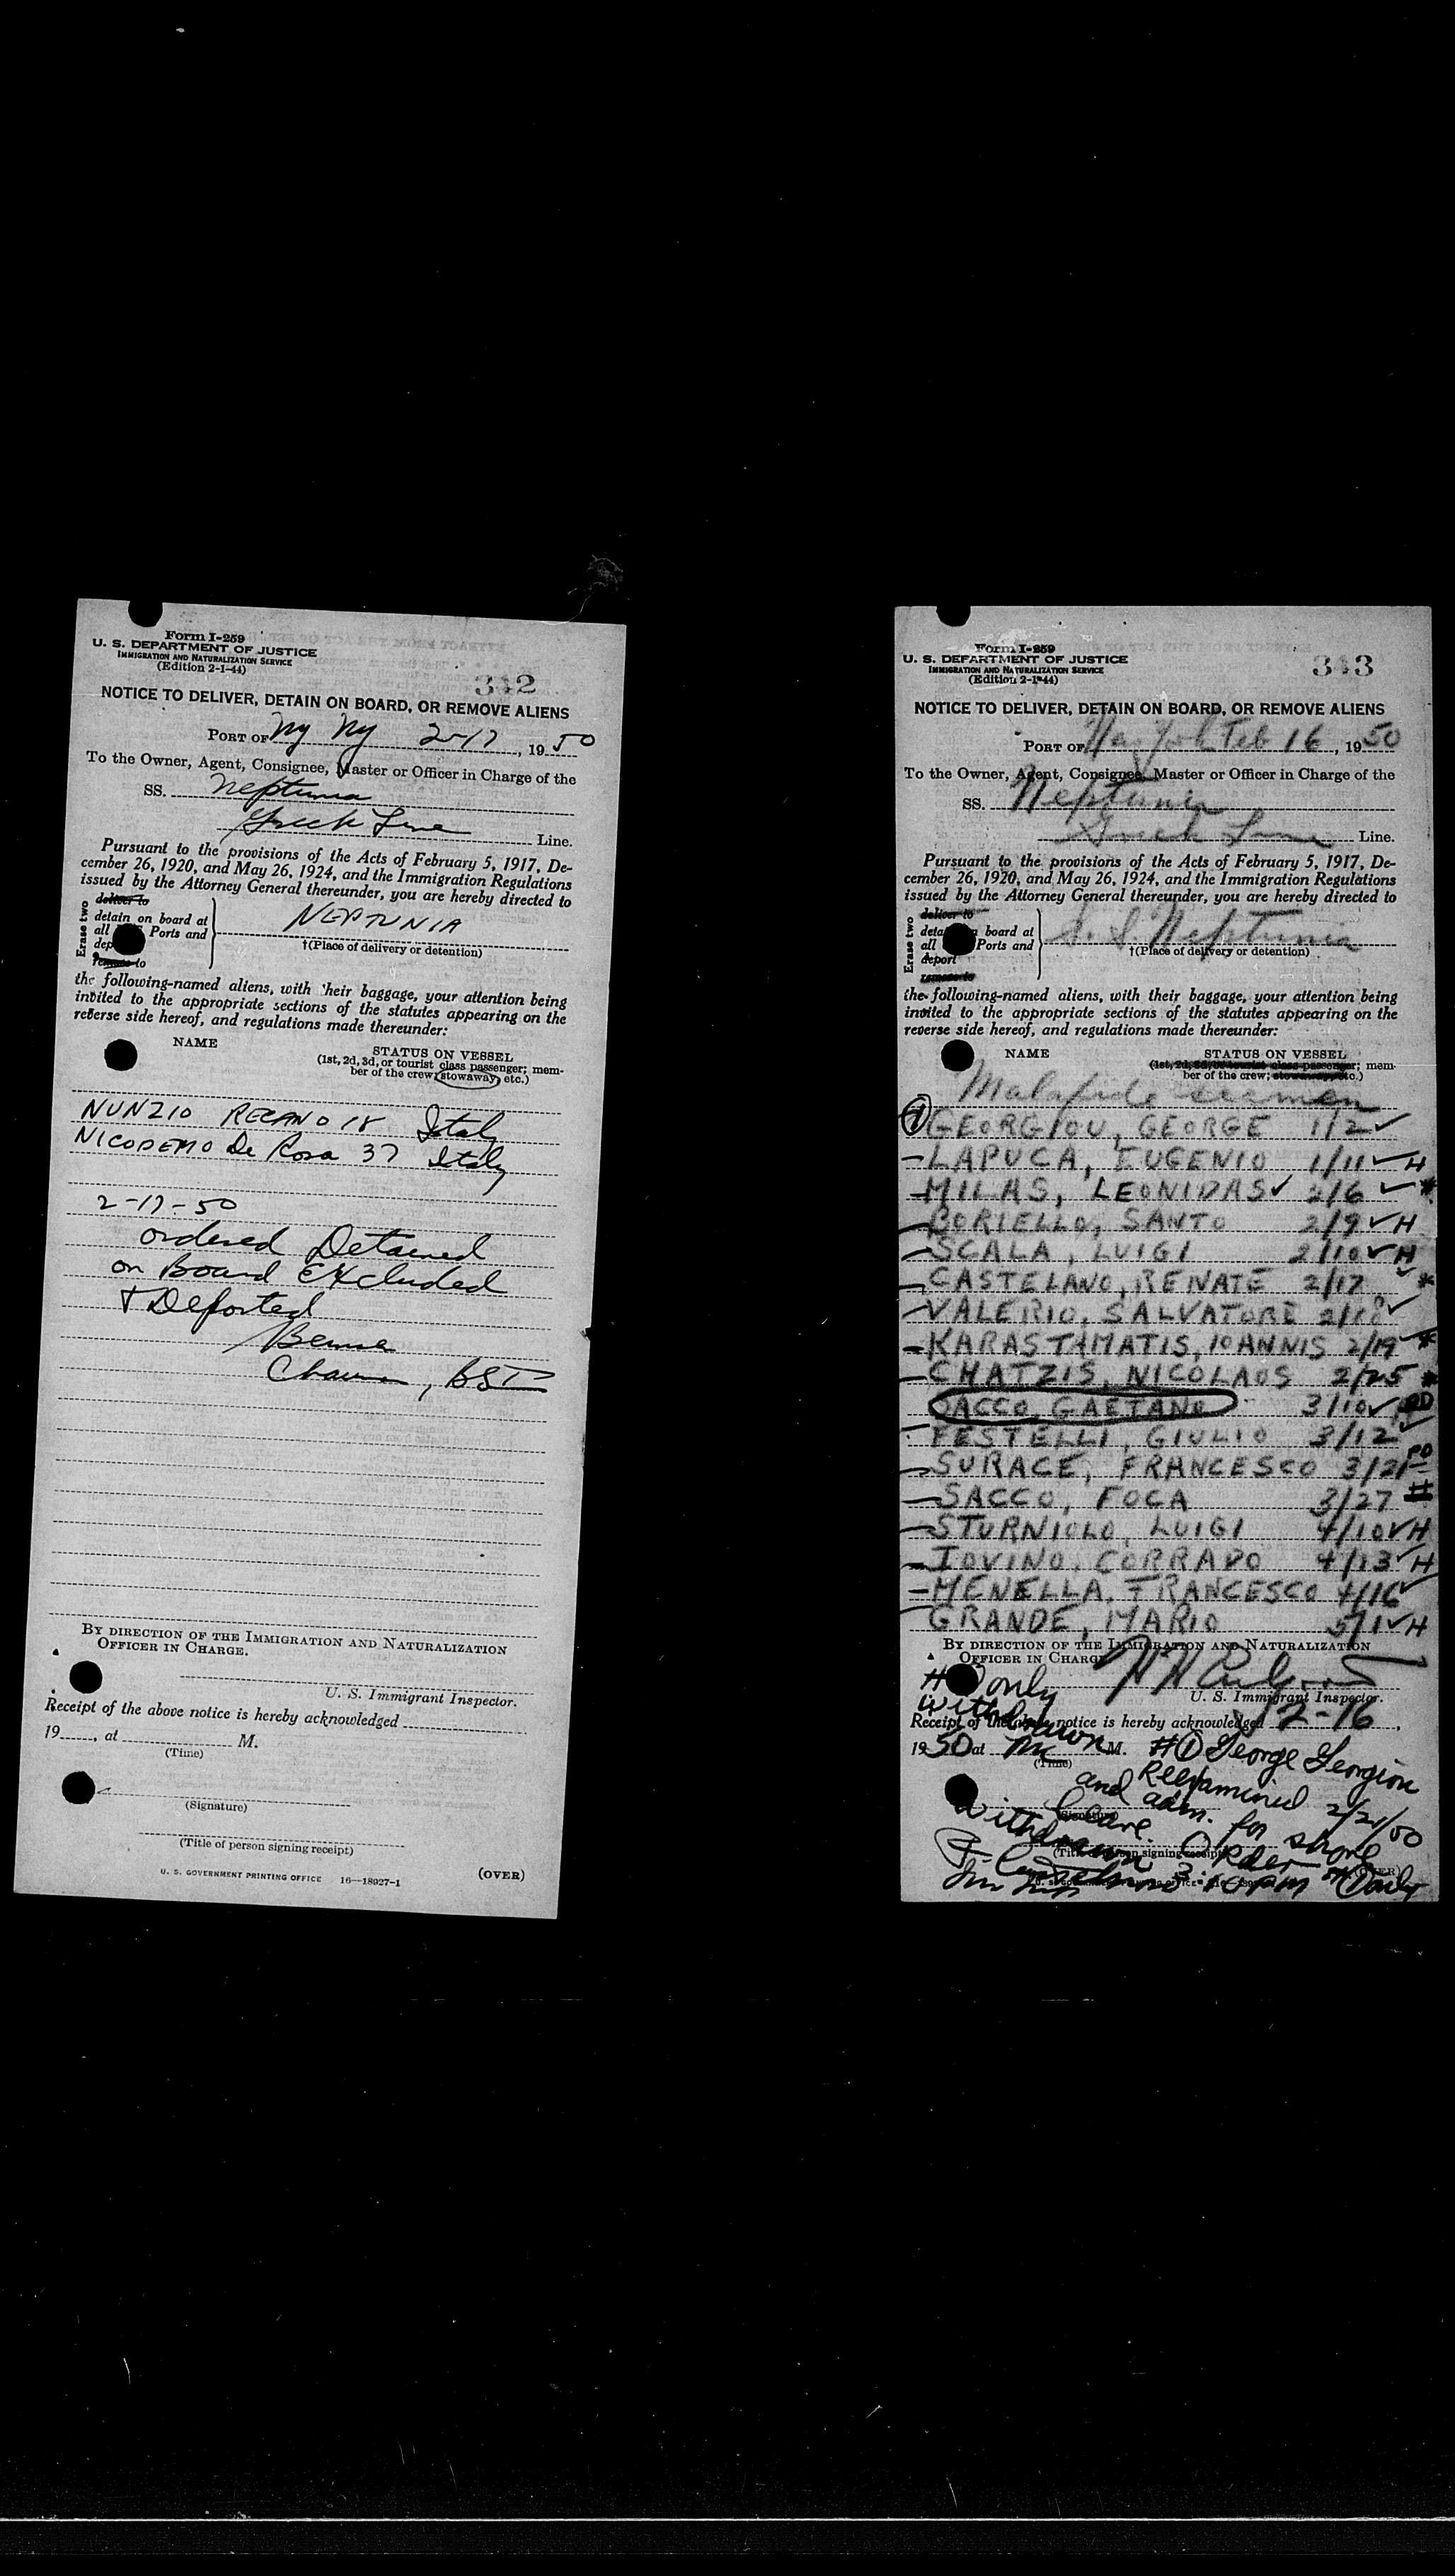 Form I-259
U. S. DEPARTMENT OF JUSTICE
IMMIGRATION AND NATURALIZATION SERVICE
(Edition 2-1-44)
342
NOTICE TO DELIVER, DETAIN ON BOARD, OR REMOVE ALIENS
PORT OF Ny Ny 2-17, 1950
To the Owner, Agent, Consignee, Master or Officer in Charge of the
SS. Neptunia
Greek Line Line.
Pursuant to the provisions of the Acts of February 5, 1917, De-
cember 26, 1920, and May 26, 1924, and the Immigration Regulations
issued by the Attorney General thereunder, you are hereby directed to
Erase two
deliver to
detain on board at
all Ports and
dep
remove to
NEPTUNIA
†(Place of delivery or detention)
the following-named aliens, with their baggage, your attention being
invited to the appropriate sections of the statutes appearing on the
reverse side hereof, and regulations made thereunder:
NAME
STATUS ON VESSEL
(1st, 2d, 3d, or tourist class passenger; mem-
ber of the crew; stowaway, etc.)
NUNZIO RECANO 18 Italy
NICODEMO De Rosa 37 Italy
2-17-50
ordered Detained
on Board Excluded
& Deported
Chairman, BSI
BY DIRECTION OF THE IMMIGRATION AND NATURALIZATION
OFFICER IN CHARGE.
U. S. Immigrant Inspector.
Receipt of the above notice is hereby acknowledged
19, at M.
(Time)
(Signature)
(Title of person signing receipt)
U. S. GOVERNMENT PRINTING OFFICE 16—18927-1
(OVER)
Form I-259
U. S. DEPARTMENT OF JUSTICE
IMMIGRATION AND NATURALIZATION SERVICE
(Edition 2-1-44)
343
NOTICE TO DELIVER, DETAIN ON BOARD, OR REMOVE ALIENS
PORT OF New York Feb 16, 1950
To the Owner, Agent, Consignee, Master or Officer in Charge of the
SS. Neptunia
Greek Line Line.
Pursuant to the provisions of the Acts of February 5, 1917, De-
cember 26, 1920, and May 26, 1924, and the Immigration Regulations
issued by the Attorney General thereunder, you are hereby directed to
Erase two
deliver to
detain board at
all Ports and
deport
remove to
S. S. Neptunia
†(Place of delivery or detention)
the following-named aliens, with their baggage, your attention being
invited to the appropriate sections of the statutes appearing on the
reverse side hereof, and regulations made thereunder:
NAME
STATUS ON VESSEL
(1st, 2d, 3d, or tourist class passenger; mem-
ber of the crew; stowaway, etc.)
Malafide seamen
① GEORGIOU, GEORGE 1/2 ✓
- LAPUCA, EUGENIO 1/11 ✓ H
- MILAS, LEONIDAS ✓ 2/6 ✓ *
- BORIELLO, SANTO 2/9 ✓ H
- SCALA, LUIGI 2/10 ✓ H
- CASTELANO, RENATE 2/17 ✓ *
- VALERIO, SALVATORE 2/18 ✓
- KARASTAMATIS, IOANNIS 2/19 ✓ *
- CHATZIS, NICOLAOS 2/25 *
SACCO, GAETANO 3/10 ✓ PD
- FESTELLI, GIULIO 3/12 ✓
- SURACE, FRANCESCO 3/21 PD
- SACCO, FOCA 3/27 H
- STURNIOLO, LUIGI 4/10 ✓ H
- IOVINO, CORRADO 4/13 ✓ H
- MENELLA, FRANCESCO 4/16 ✓
- GRANDE, MARIO 5/1 ✓ H
BY DIRECTION OF THE IMMIGRATION AND NATURALIZATION
OFFICER IN CHARGE
# only
withdrawn
U. S. Immigrant Inspector.
Receipt of the above notice is hereby acknowledged 2-16,
1950 at M.
(Time)
#① George Georgiou
Reexamined 2/21/50
and adm. for shore
leave. Order
withdrawn 3:10 PM
(Signature)
(Title of person signing receipt)
(OVER)